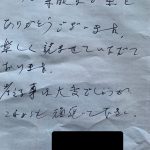 ありがとうございます。
楽しく読ませていただいて
おります。
お仕事は大変でしょうが
これからも頑張って下さい。